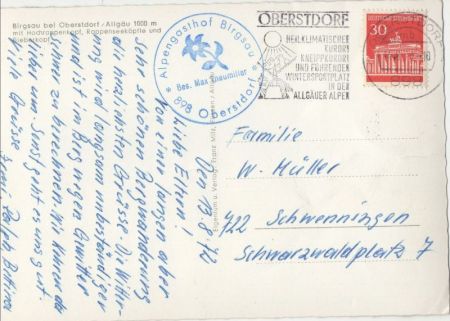 Birgsau bei Oberstdorf/Allgäu 1000 m
mit Hochrappenkopf, Rappenseeköpfle und
Biberkopf
Alpengasthof Birgsau
Bes. Max Thaumiller
* 898 Oberstdorf *
OBERSTDORF
HEILKLIMATISCHER
KURORT
KNEIPPKURORT
UND FÜHRENDER
WINTERSPORTPLATZ
IN DER
ALLGÄUER ALPEN
30
Den 13.8.72
Liebe Eltern!
Von einer kurzen aber
sehr schönen Bergwanderung
die herzlichsten Grüsse. Die Witte-
rung wird langsam unbeständiger
und ist im Berg wegen Gewitter
nicht zu berechnen. Wir kehren da
lieber um. Sonst geht es uns gut.
Viele Grüsse Ralph Bettina
Familie
W. Müller
722 Schwenningen
Schwarzwaldplatz 7